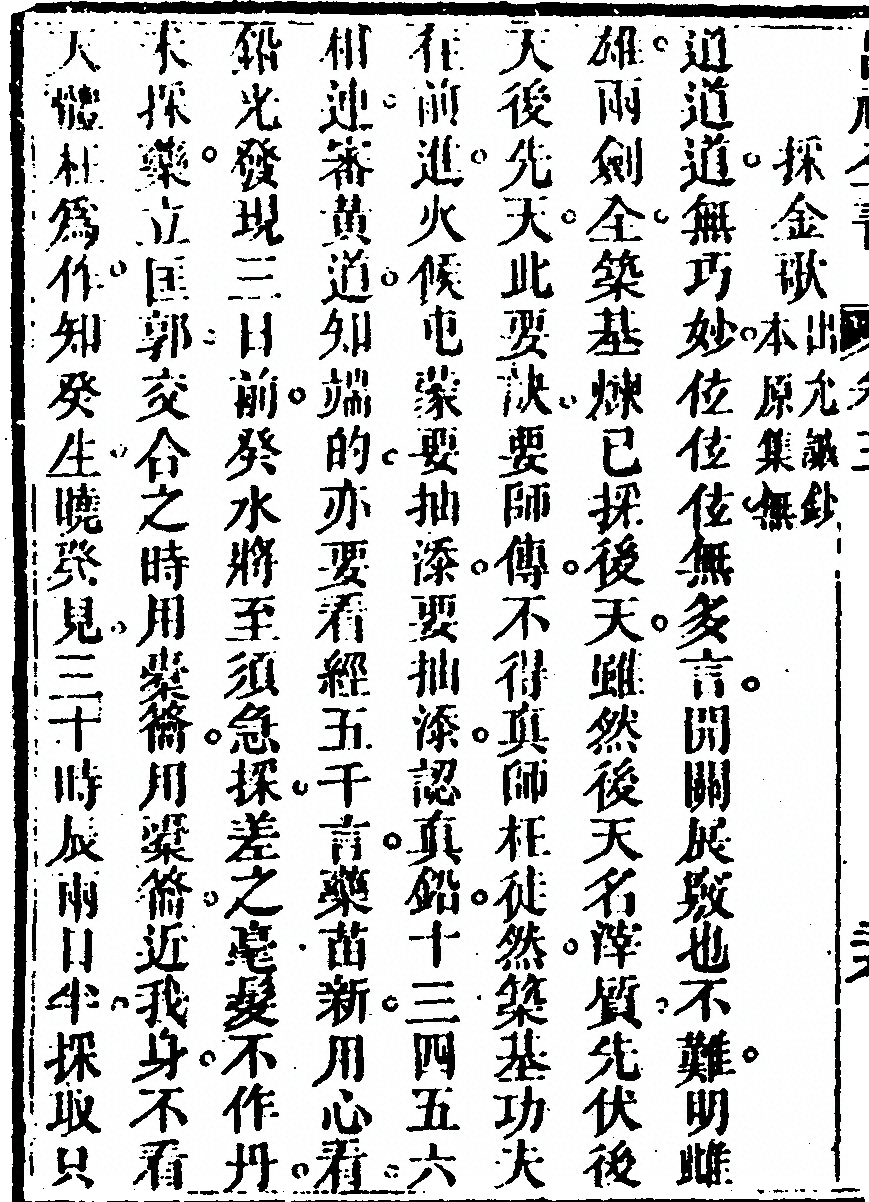 採金歌 出允誠鈔本原集無
道道道無巧妙位位位無多言開關展竅也不難明雌
雄兩劍全築基煉已採後天雖然後天名滓質先伏後
天後先天此要訣要師傳不得真師枉徒然築基功夫
在前進火候屯蒙要抽添要抽添認真鉛十三四五六
相連審黃道知端的亦要看經五千言藥苗新用心看
鉛光發現三日前癸水將至須急採差之毫髮不作丹
未採藥立匡郭交合之時用橐籥用橐籥近我身不看
大體枉為作知癸生曉癸見三十時辰兩日半採取只